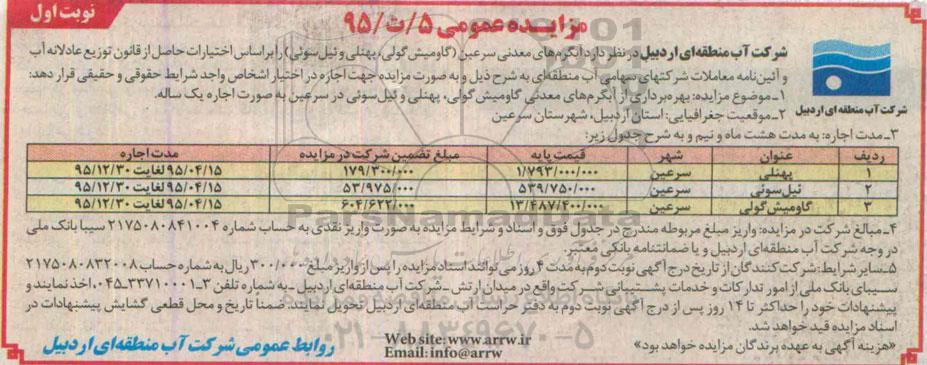 نوبت اول
مزایده عمومی ۵/ث/۹۵
شرکت آب منطقه‌ای اردبیل در نظر دارد آبگرم‌های معدنی سرعین (گاومیش گولی، پهنلی و ئیل سوئی) را براساس اختیارات حاصل از قانون توزیع عادلانه آب
و آئین‌نامه معاملات شرکتهای سهامی آب منطقه‌ای به شرح ذیل و به صورت مزایده جهت اجاره در اختیار اشخاص واجد شرایط حقوقی و حقیقی قرار دهد:
۱-موضوع مزایده: بهره‌برداری از آبگرم‌های معدنی گاومیش گولی، پهنلی و ئیل سوئی در سرعین به صورت اجاره یک ساله.
شرکت آب منطقه‌ای اردبیل
۲-موقعیت جغرافیایی: استان اردبیل، شهرستان سرعین
۳-مدت اجاره: به مدت هشت ماه و نیم و به شرح جدول زیر:
ردیف عنوان شهر قیمت پایه مبلغ تضمین شرکت در مزایده مدت اجاره
۱ پهنلی سرعین ۱/۷۹۳/۰۰۰/۰۰۰ ۱۷۹/۳۰۰/۰۰۰ ۹۵/۰۴/۱۵ لغایت ۹۵/۱۲/۳۰
۲ ئیل سوئی سرعین ۵۳۹/۷۵۰/۰۰۰ ۵۳/۹۷۵/۰۰۰ ۹۵/۰۴/۱۵ لغایت ۹۵/۱۲/۳۰
۳ گاومیش گولی سرعین ۱۳/۴۸۷/۴۰۰/۰۰۰ ۶۰۴/۶۲۲/۰۰۰ ۹۵/۰۴/۱۵ لغایت ۹۵/۱۲/۳۰
۴-مبالغ شرکت در مزایده: واریز مبلغ مربوطه مندرج در جدول فوق و اسناد و شرایط مزایده به صورت واریز نقدی به حساب شماره ۲۱۷۵۰۸۰۸۴۱۰۰۴ سیبا بانک ملی
در وجه شرکت آب منطقه‌ای اردبیل و یا ضمانتنامه بانکی معتبر.
۵-سایر شرایط: شرکت کنندگان از تاریخ درج آگهی نوبت دوم به مدت ۴ روز می‌توانند اسناد مزایده را پس از واریز مبلغ ۳۰۰/۰۰۰ ریال به شماره حساب ۲۱۷۵۰۸۰۸۳۲۰۰۸
سیبای بانک ملی از امور تدارکات و خدمات پشتیبانی شرکت واقع در میدان ارتش-شرکت آب منطقه‌ای اردبیل-به شماره تلفن ۳-۳۳۷۱۰۰۰۱-۰۴۵، اخذ نمایند و
پیشنهادات خود را حداکثر تا ۱۴ روز پس از درج آگهی نوبت دوم به دفتر حراست آب منطقه‌ای اردبیل تحویل نمایند. ضمنا تاریخ و محل قطعی گشایش پیشنهادات در
اسناد مزایده قید خواهد شد.
«هزینه آگهی به عهده برندگان مزایده خواهد بود»
Web site: www.arrw.ir
Email: info@arrw
روابط عمومی شرکت آب منطقه‌ای اردبیل
ParsNamadData
۰۲۱-۸۸۳۴۹۶۷۰-۵